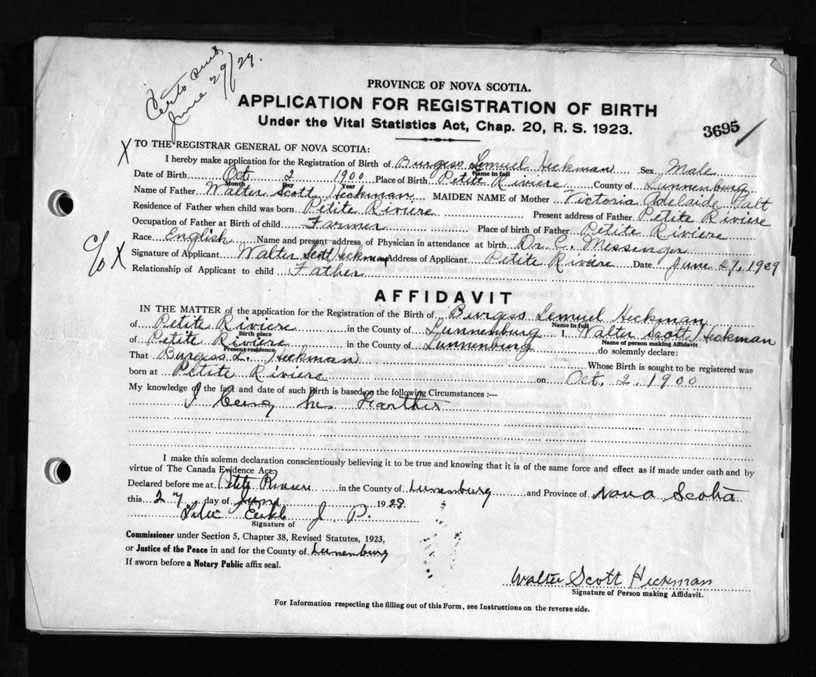 June 29/29.
PROVINCE OF NOVA SCOTIA.
APPLICATION FOR REGISTRATION OF BIRTH
Under the Vital Statistics Act, Chap. 20, R. S. 1923.
3695
X TO THE REGISTRAR GENERAL OF NOVA SCOTIA:
I hereby make application for the Registration of Birth of Burgess Lemuel Heckman Sex Male
Name in full
Date of Birth Oct 2 1900 Place of Birth Petite Riviere County of Lunnenburg
Month Day Year
Name of Father Walter Scott Heckman MAIDEN NAME of Mother Victoria Adelaide
Residence of Father when child was born Petite Riviere Present address of Father Petite Riviere
Occupation of Father at Birth of child Farmer Place of birth of Father Petite Riviere
Race English Name and present address of Physician in attendance at birth Dr. C. Messenger
c/o X Signature of Applicant Walter Scott Heckman Address of Applicant Petite Riviere Date June 27, 1929
Relationship of Applicant to child Father
AFFIDAVIT
IN THE MATTER of the application for the Registration of the Birth of Burgess Lemuel Heckman
Name in full
of Petite Riviere in the County of Lunnenburg I, Walter Scott Heckman
Birth place Name of person making Affidavit
of Petite Riviere in the County of Lunnenburg do solemnly declare:
Present residence
That Burgess L. Heckman Whose Birth is sought to be registered was
born at Petite Riviere on Oct. 2. 1900
My knowledge of the fact and date of such Birth is based on the following Circumstances :—
I being his
I make this solemn declaration conscientiously believing it to be true and knowing that it is of the same force and effect as if made under oath and by
virtue of The Canada Evidence Act.
Declared before me at Petite Riviere in the County of Lunenburg and Province of Nova Scotia
this 27 day of June 1929
J. P.
Signature of
Commissioner under Section 5, Chapter 38, Revised Statutes, 1923,
or Justice of the Peace in and for the County of Lunenburg
If sworn before a Notary Public affix seal.
Walter Scott Heckman
Signature of Person making Affidavit.
For Information respecting the filling out of this Form, see Instructions on the reverse side.